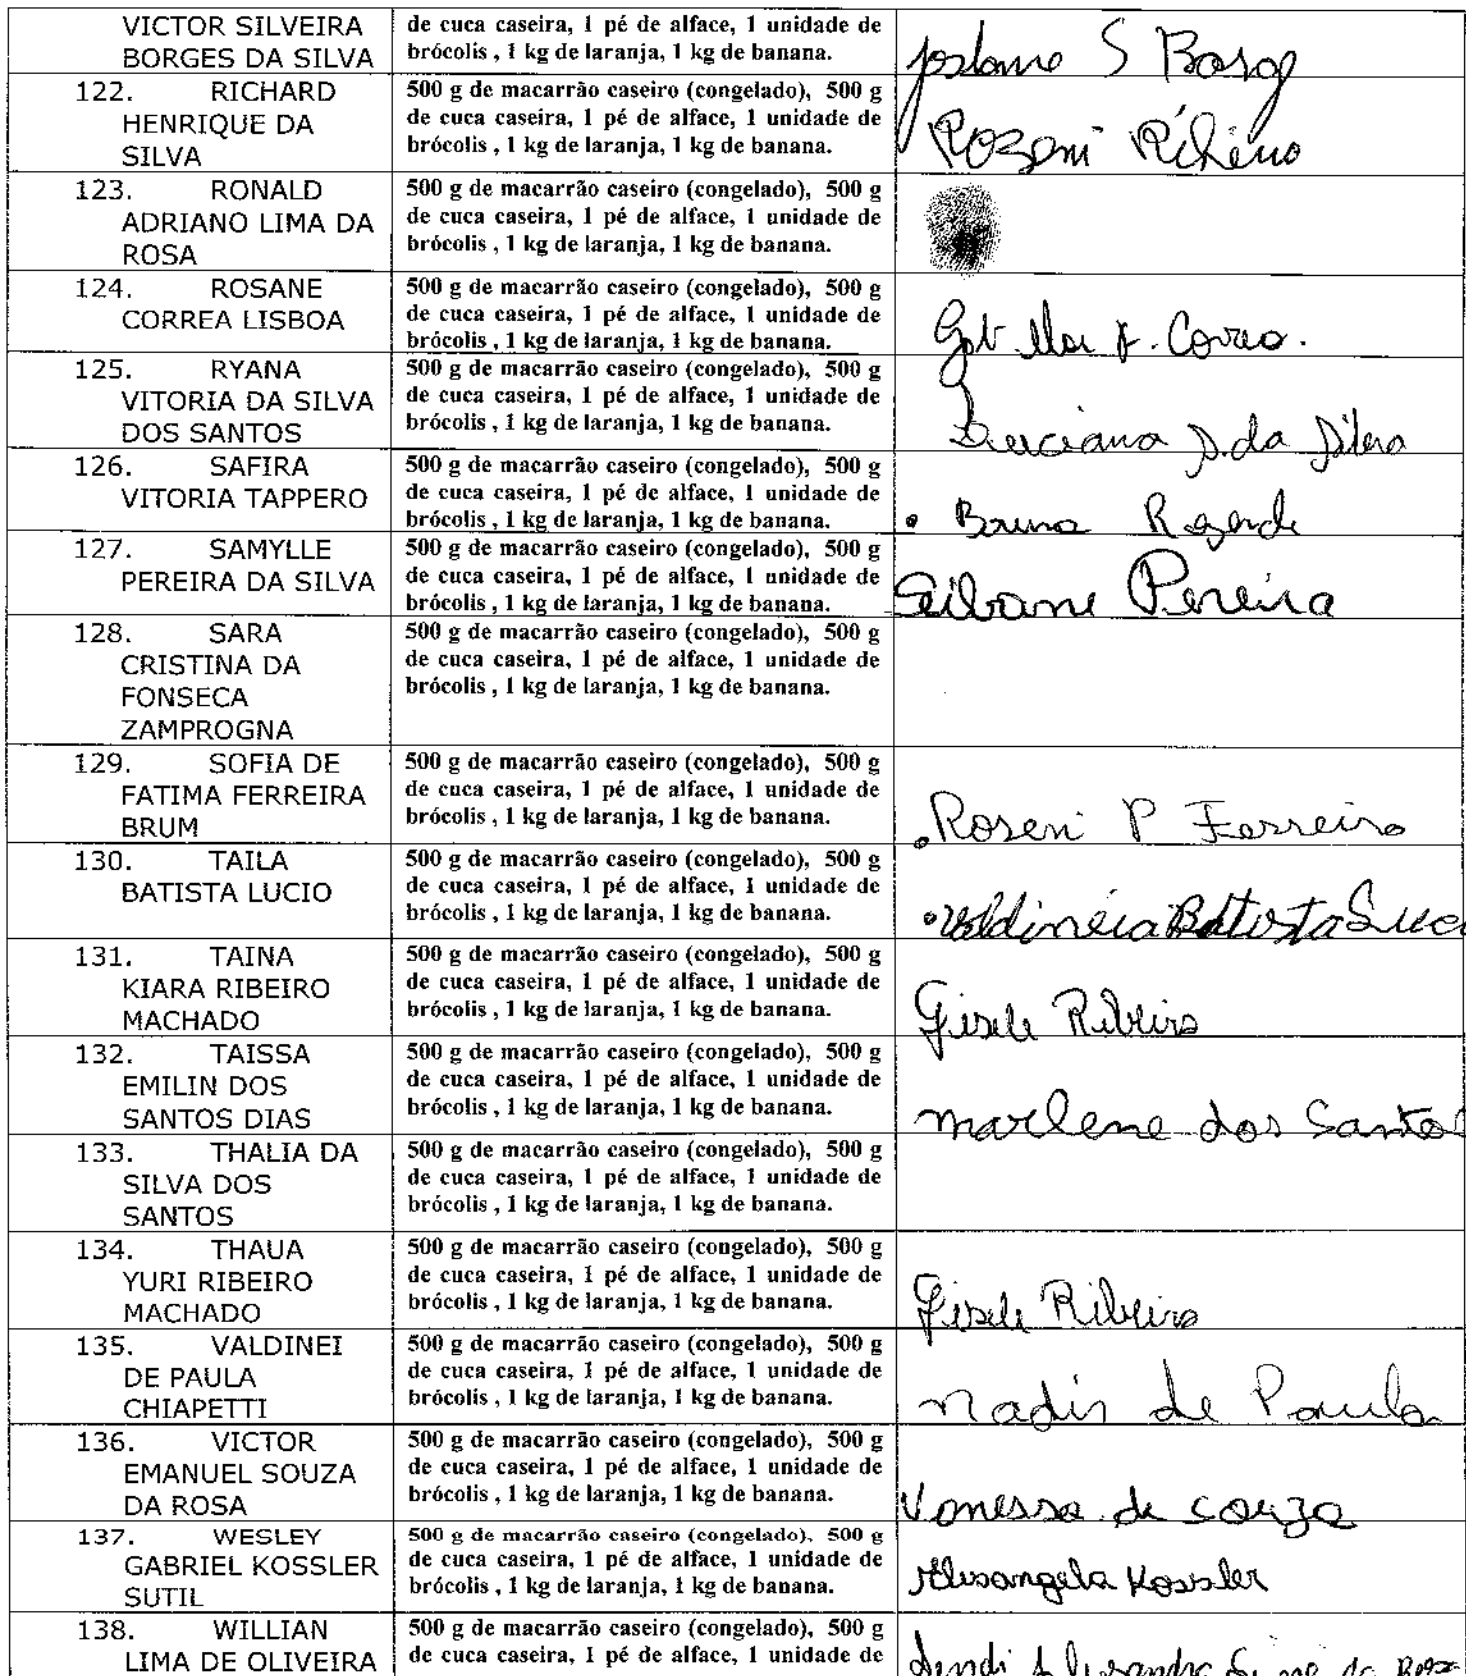 VICTOR SILVEIRA
BORGES DA SILVA
de cuca caseira, 1 pé de alface, 1 unidade de
brócolis , 1 kg de laranja, 1 kg de banana.
S Borg
122. RICHARD
HENRIQUE DA
SILVA
500 g de macarrão caseiro (congelado), 500 g
de cuca caseira, 1 pé de alface, 1 unidade de
brócolis , 1 kg de laranja, 1 kg de banana.
Rozeni
123. RONALD
ADRIANO LIMA DA
ROSA
500 g de macarrão caseiro (congelado), 500 g
de cuca caseira, 1 pé de alface, 1 unidade de
brócolis , 1 kg de laranja, 1 kg de banana.
124. ROSANE
CORREA LISBOA
500 g de macarrão caseiro (congelado), 500 g
de cuca caseira, 1 pé de alface, 1 unidade de
brócolis , 1 kg de laranja, 1 kg de banana.
125. RYANA
VITORIA DA SILVA
DOS SANTOS
500 g de macarrão caseiro (congelado), 500 g
de cuca caseira, 1 pé de alface, 1 unidade de
brócolis , 1 kg de laranja, 1 kg de banana.
da Silva
126. SAFIRA
VITORIA TAPPERO
500 g de macarrão caseiro (congelado), 500 g
de cuca caseira, 1 pé de alface, 1 unidade de
brócolis , 1 kg de laranja, 1 kg de banana.
. Bruna
127. SAMYLLE
PEREIRA DA SILVA
500 g de macarrão caseiro (congelado), 500 g
de cuca caseira, 1 pé de alface, 1 unidade de
brócolis , 1 kg de laranja, 1 kg de banana.
Pereira
128. SARA
CRISTINA DA
FONSECA
ZAMPROGNA
500 g de macarrão caseiro (congelado), 500 g
de cuca caseira, 1 pé de alface, 1 unidade de
brócolis , 1 kg de laranja, 1 kg de banana.
129. SOFIA DE
FATIMA FERREIRA
BRUM
500 g de macarrão caseiro (congelado), 500 g
de cuca caseira, 1 pé de alface, 1 unidade de
brócolis , 1 kg de laranja, 1 kg de banana.
. Roseni P Ferreira
130. TAILA
BATISTA LUCIO
500 g de macarrão caseiro (congelado), 500 g
de cuca caseira, 1 pé de alface, 1 unidade de
brócolis , 1 kg de laranja, 1 kg de banana.
. Valdineia Batista Luci
131. TAINA
KIARA RIBEIRO
MACHADO
500 g de macarrão caseiro (congelado), 500 g
de cuca caseira, 1 pé de alface, 1 unidade de
brócolis , 1 kg de laranja, 1 kg de banana.
Gisele Ribeiro
132. TAISSA
EMILIN DOS
SANTOS DIAS
500 g de macarrão caseiro (congelado), 500 g
de cuca caseira, 1 pé de alface, 1 unidade de
brócolis , 1 kg de laranja, 1 kg de banana.
marlene dos Santos
133. THALIA DA
SILVA DOS
SANTOS
500 g de macarrão caseiro (congelado), 500 g
de cuca caseira, 1 pé de alface, 1 unidade de
brócolis , 1 kg de laranja, 1 kg de banana.
134. THAUA
YURI RIBEIRO
MACHADO
500 g de macarrão caseiro (congelado), 500 g
de cuca caseira, 1 pé de alface, 1 unidade de
brócolis , 1 kg de laranja, 1 kg de banana.
Gisele Ribeiro
135. VALDINEI
DE PAULA
CHIAPETTI
500 g de macarrão caseiro (congelado), 500 g
de cuca caseira, 1 pé de alface, 1 unidade de
brócolis , 1 kg de laranja, 1 kg de banana.
nadir de Paula
136. VICTOR
EMANUEL SOUZA
DA ROSA
500 g de macarrão caseiro (congelado), 500 g
de cuca caseira, 1 pé de alface, 1 unidade de
brócolis , 1 kg de laranja, 1 kg de banana.
Vanessa de Souza
137. WESLEY
GABRIEL KOSSLER
SUTIL
500 g de macarrão caseiro (congelado), 500 g
de cuca caseira, 1 pé de alface, 1 unidade de
brócolis , 1 kg de laranja, 1 kg de banana.
Elisangela Kossler
138. WILLIAN
LIMA DE OLIVEIRA
500 g de macarrão caseiro (congelado), 500 g
de cuca caseira, 1 pé de alface, 1 unidade de
da Rosa